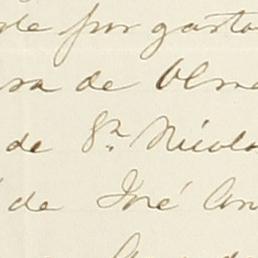 de por gasto
de Olm
de Sn. Nicola
de José An